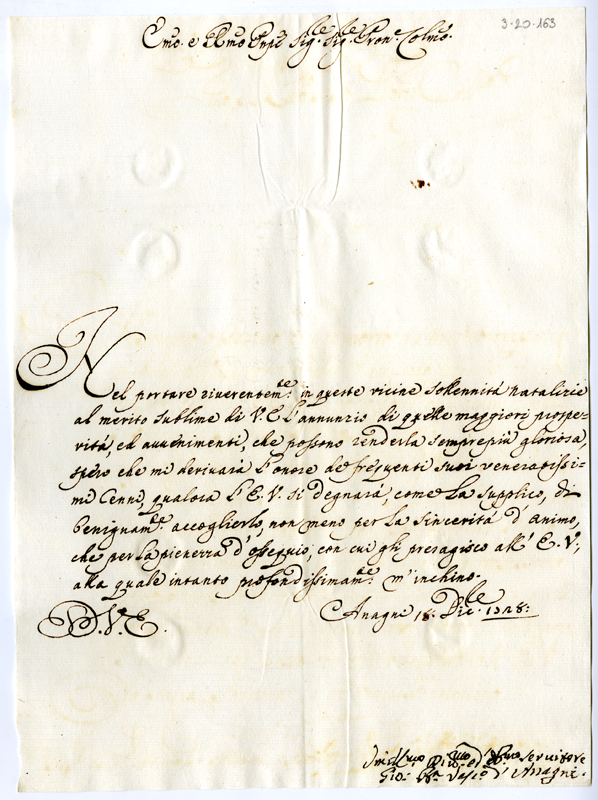 3·20·163
Emo. e Rmo Sigre Sigre Pron. Colmo.
Nel portare riverentemte. in queste vicine solennità natalizie
al merito sublime di V.E. l'annunzio di quelle maggiori prospe-
rità, ed avvenimenti, che possono renderla semprepiù gloriosa,
spero che mi derivarà l'onore de frequenti suoi veneratissi-
mi cenni, qualora l'E.V. si degnarà, come la supplico, di
benignamte. accoglierlo, non meno per la sincerità d'animo,
che per la pienezza d'osseguio, con cui gli presagisco all'E.V.,
alla quale intanto profondissimamte. m'inchino.
D.V.E.
Anagni 18: Dic.le 1728:
servitore
Gio. Bta. Vesco. d'Anagni.